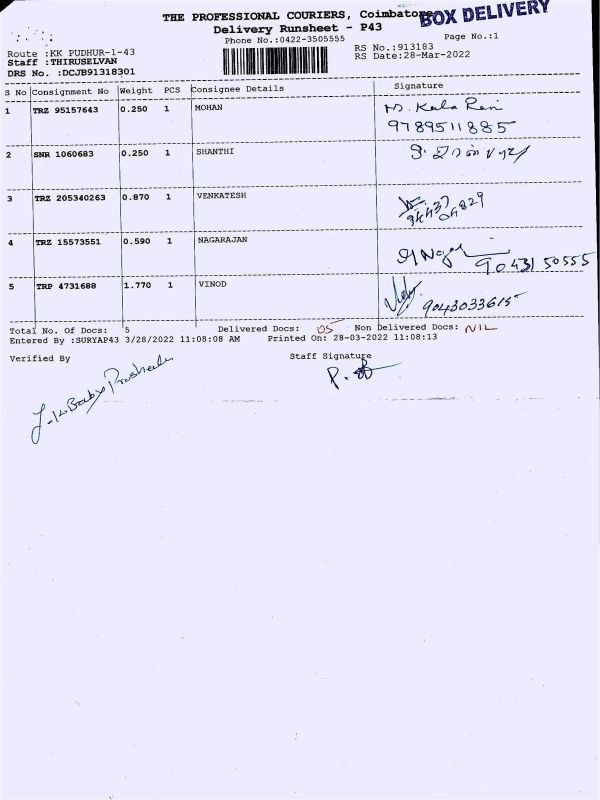 THE PROFESSIONAL COURIERS, Coimbatore
BOX DELIVERY
Delivery Runsheet - P43
Phone No.:0422-3505555
Page No.:1
Route :KK PUDHUR-1-43
RS No.:913183
Staff :THIRUSELVAN
RS Date:28-Mar-2022
DRS No. :DCJB91318301
S No Consignment No Weight PCS Consignee Details Signature
1 TRZ 95157643 0.250 1 MOHAN M. Kala Rani
9789511885
2 SNR 1060683 0.250 1 SHANTHI
3 TRZ 205340263 0.870 1 VENKATESH
4 TRZ 15573551 0.590 1 NAGARAJAN
9043150555
5 TRP 4731688 1.770 1 VINOD
9043033615
Total No. Of Docs: 5 Delivered Docs: 05 Non Delivered Docs: NIL
Entered By :SURYAP43 3/28/2022 11:08:08 AM Printed On: 28-03-2022 11:08:13
Verified By Staff Signature